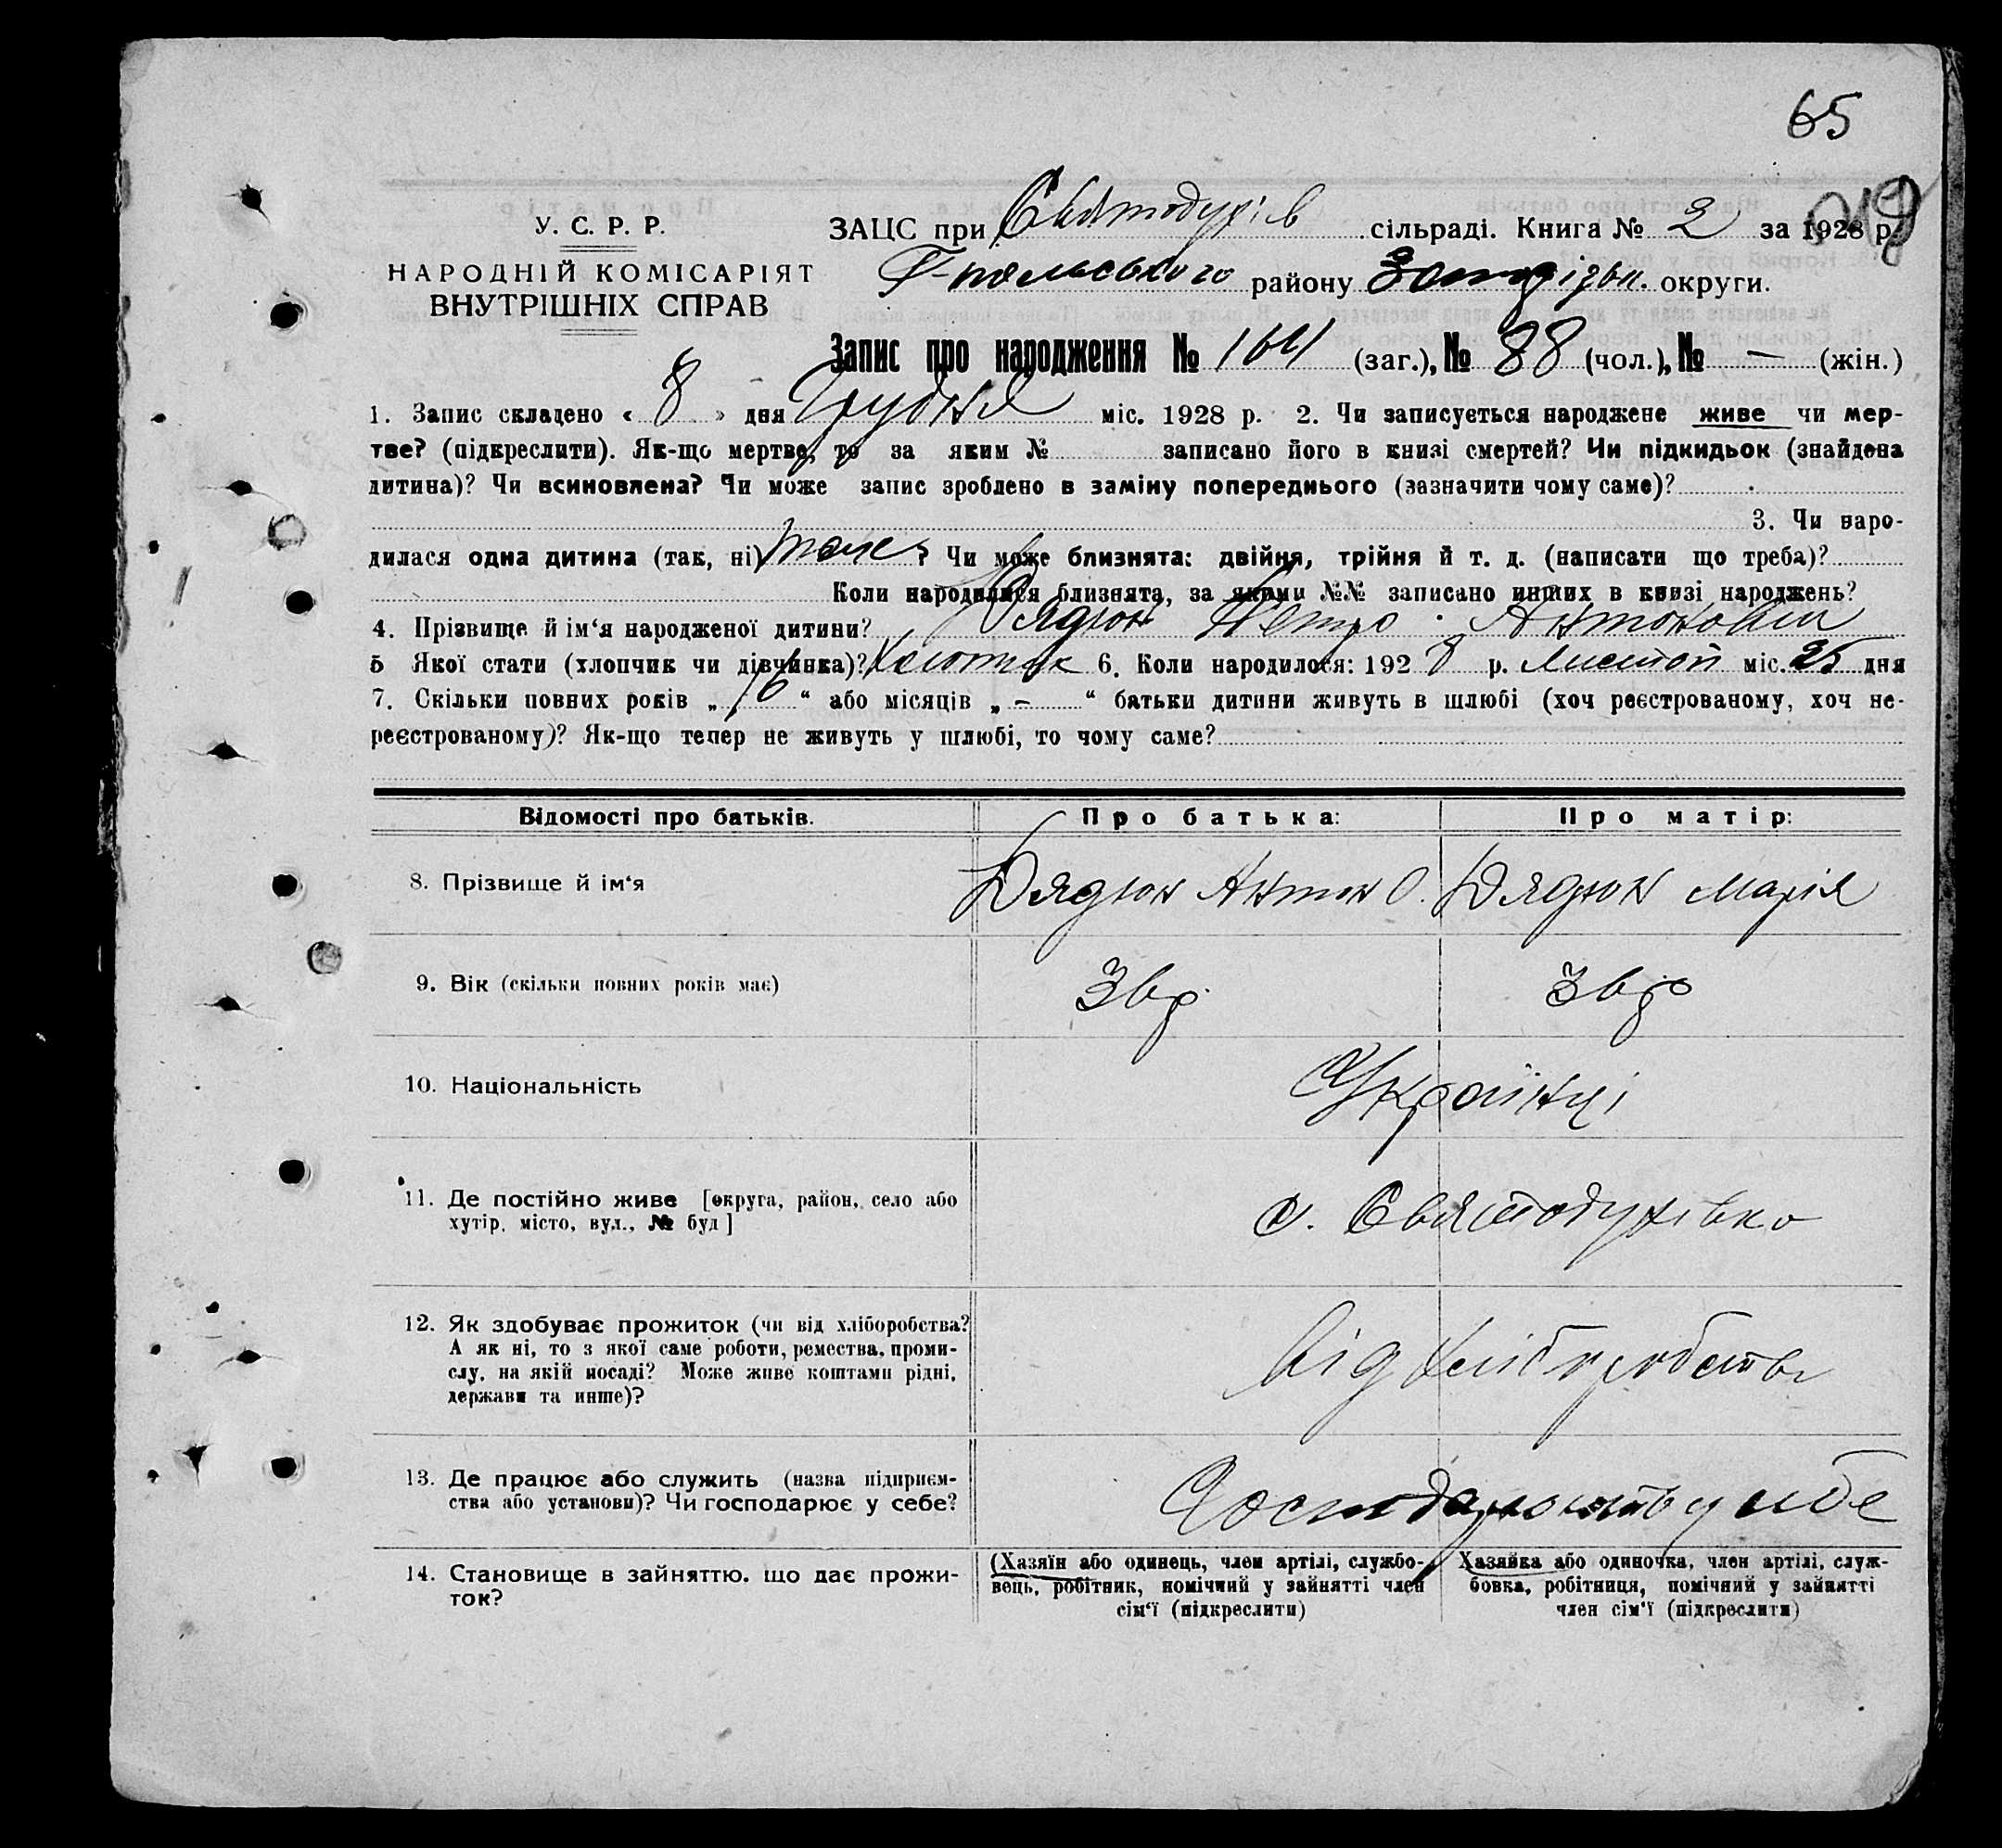 65
У. С. Р. Р.
НАРОДНІЙ КОМІСАРІЯТ
ВНУТРІШНІХ СПРАВ
ЗАЦС при Святодухів сільраді. Книга № 2 за 1928 р.
Г-польського району Запорізьк. округи.
Запис про народження № 164 (заг.), № 88 (чол.), № — (жін.)
1. Запис складено « 8 » дня Грудня міс. 1928 р. 2. Чи записується народжене живе чи мер-
тве? (підкреслити). Як-що мертве, то за яким № записано його в книзі смертей? Чи підкидьок (знайдена
дитина)? Чи всиновлена? Чи може запис зроблено в заміну попереднього (зазначити чому саме)?
3. Чи наро-
дилася одна дитина (так, ні) так ? Чи може близнята: двійня, трійня й т. д. (написати що треба)?
Коли народилися близнята, за якими №№ записано инших в книзі народжень?
4. Прізвище й ім‘я народженої дитини? Дядюн Петро Антонович
5 Якої стати (хлопчик чи дівчинка)? Хлопчик 6. Коли народилося: 1928 р. Листоп міс. 25 дня
7. Скільки повних років „ 16 “ або місяців „ – “ батьки дитини живуть в шлюбі (хоч реєстрованому, хоч не-
реєстрованому)? Як-що тепер не живуть у шлюбі, то чому саме?
Відомості про батьків. Про батька: Про матір:
8. Прізвище й ім‘я Дядюн Антон О. Дядюн Марія
9. Вік (скільки повних років має) 36 р. 36 р
10. Національність Українці
11. Де постійно живе [округа, район, село або
хутір, місто, вул., № буд] с. Святодухівка
12. Як здобуває прожиток (чи від хліборобства?
А як ні, то з якої саме роботи, ремества, проми-
слу, на якій посаді? Може живе коштами рідні,
держави та инше)? від хліборобства
13. Де працює або служить (назва підприєм-
ства або установи)? Чи господарює у себе? у себе
14. Становище в зайняттю, що дає прожи-
ток?
(Хазяїн або одинець, член артілі, службо-
вець, робітник, помічний у зайнятті член
сім‘ї (підкреслити)
Хазяйка або одиночка, член артілі, служ-
бовка, робітниця, помічний у зайнятті
член сім‘ї (підкреслити)